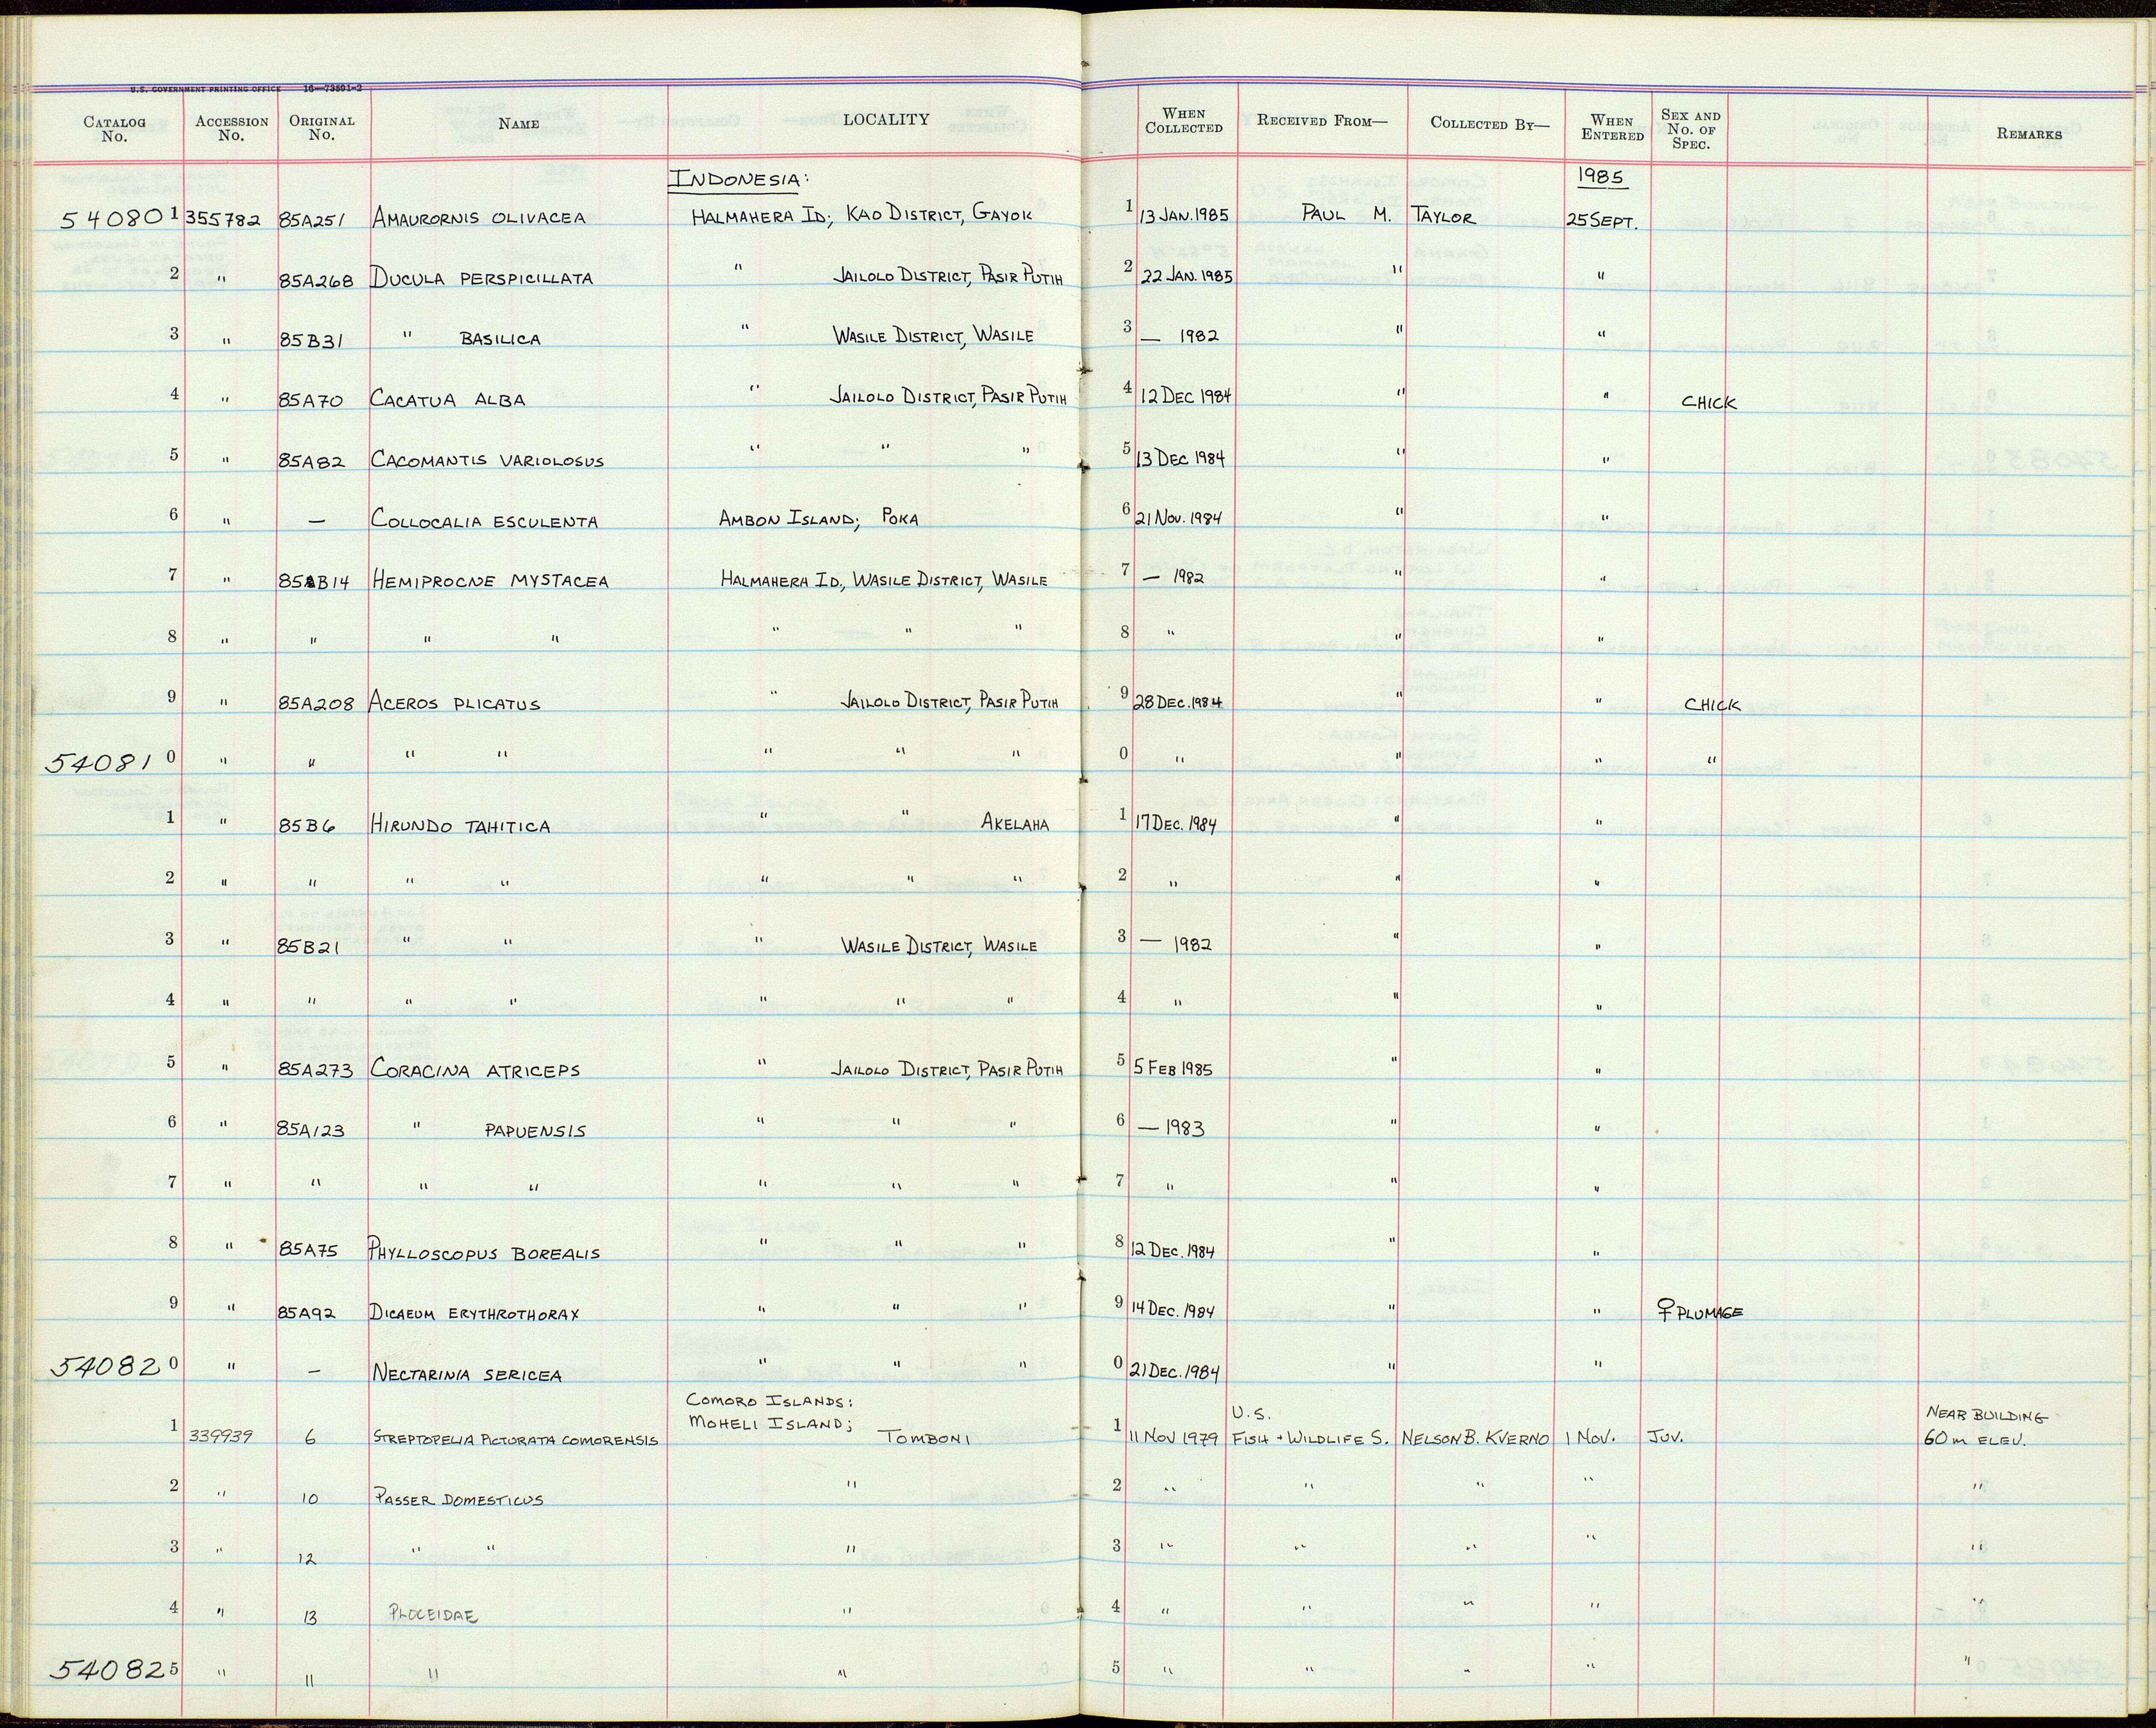 U.S. GOVERNMENT PRINTING OFFICE 16—73591-2
CATALOG No. ACCESSION No. ORIGINAL No. NAME LOCALITY WHEN COLLECTED RECEIVED FROM— COLLECTED BY— WHEN ENTERED SEX AND No. OF SPEC. REMARKS
INDONESIA: 1985
540801 355782 85A251 AMAURORNIS OLIVACEA HALMAHERA ID; KAO DISTRICT, GAYOK 1 13 JAN. 1985 PAUL M. TAYLOR 25 SEPT.
2 " 85A268 DUCULA PERSPICILLATA " JAILOLO DISTRICT, PASIR PUTIH 2 22 JAN. 1985 " "
3 " 85B31 " BASILICA " WASILE DISTRICT, WASILE 3 — 1982 " "
4 " 85A70 CACATUA ALBA " JAILOLO DISTRICT, PASIR PUTIH 4 12 DEC 1984 " " CHICK
5 " 85A82 CACOMANTIS VARIOLOSUS " " " 5 13 DEC 1984 " "
6 " — COLLOCALIA ESCULENTA AMBON ISLAND; POKA 6 21 NOV. 1984 " "
7 " 85B14 HEMIPROCNE MYSTACEA HALMAHERA ID., WASILE DISTRICT, WASILE 7 — 1982 " "
8 " " " " " " " 8 " " "
9 " 85A208 ACEROS PLICATUS " JAILOLO DISTRICT, PASIR PUTIH 9 28 DEC. 1984 " " CHICK
540810 " " " " " " " 0 " " " "
1 " 85B6 HIRUNDO TAHITICA " " AKELAHA 1 17 DEC. 1984 " "
2 " " " " " " " 2 " " "
3 " 85B21 " " " WASILE DISTRICT, WASILE 3 — 1982 " "
4 " " " " " " " 4 " " "
5 " 85A273 CORACINA ATRICEPS " JAILOLO DISTRICT, PASIR PUTIH 5 5 FEB 1985 " "
6 " 85A123 " PAPUENSIS " " " 6 — 1983 " "
7 " " " " " " " 7 " " "
8 " 85A75 PHYLLOSCOPUS BOREALIS " " " 8 12 DEC. 1984 " "
9 " 85A92 DICAEUM ERYTHROTHORAX " " " 9 14 DEC. 1984 " " ♀ PLUMAGE
540820 " — NECTARINIA SERICEA " " " 0 21 DEC. 1984 " "
COMORO ISLANDS: U.S. NEAR BUILDING
1 339939 6 STREPTOPELIA PICTURATA COMORENSIS MOHELI ISLAND; TOMBONI 1 11 NOV 1979 FISH + WILDLIFE S. NELSON B. KVERNO 1 NOV. JUV. 60 m ELEV.
2 " 10 PASSER DOMESTICUS " 2 " " " " "
3 " 12 " " " 3 " " " " "
4 " 13 PLOCEIDAE " 4 " " " " "
540825 " 11 " " 5 " " " " "